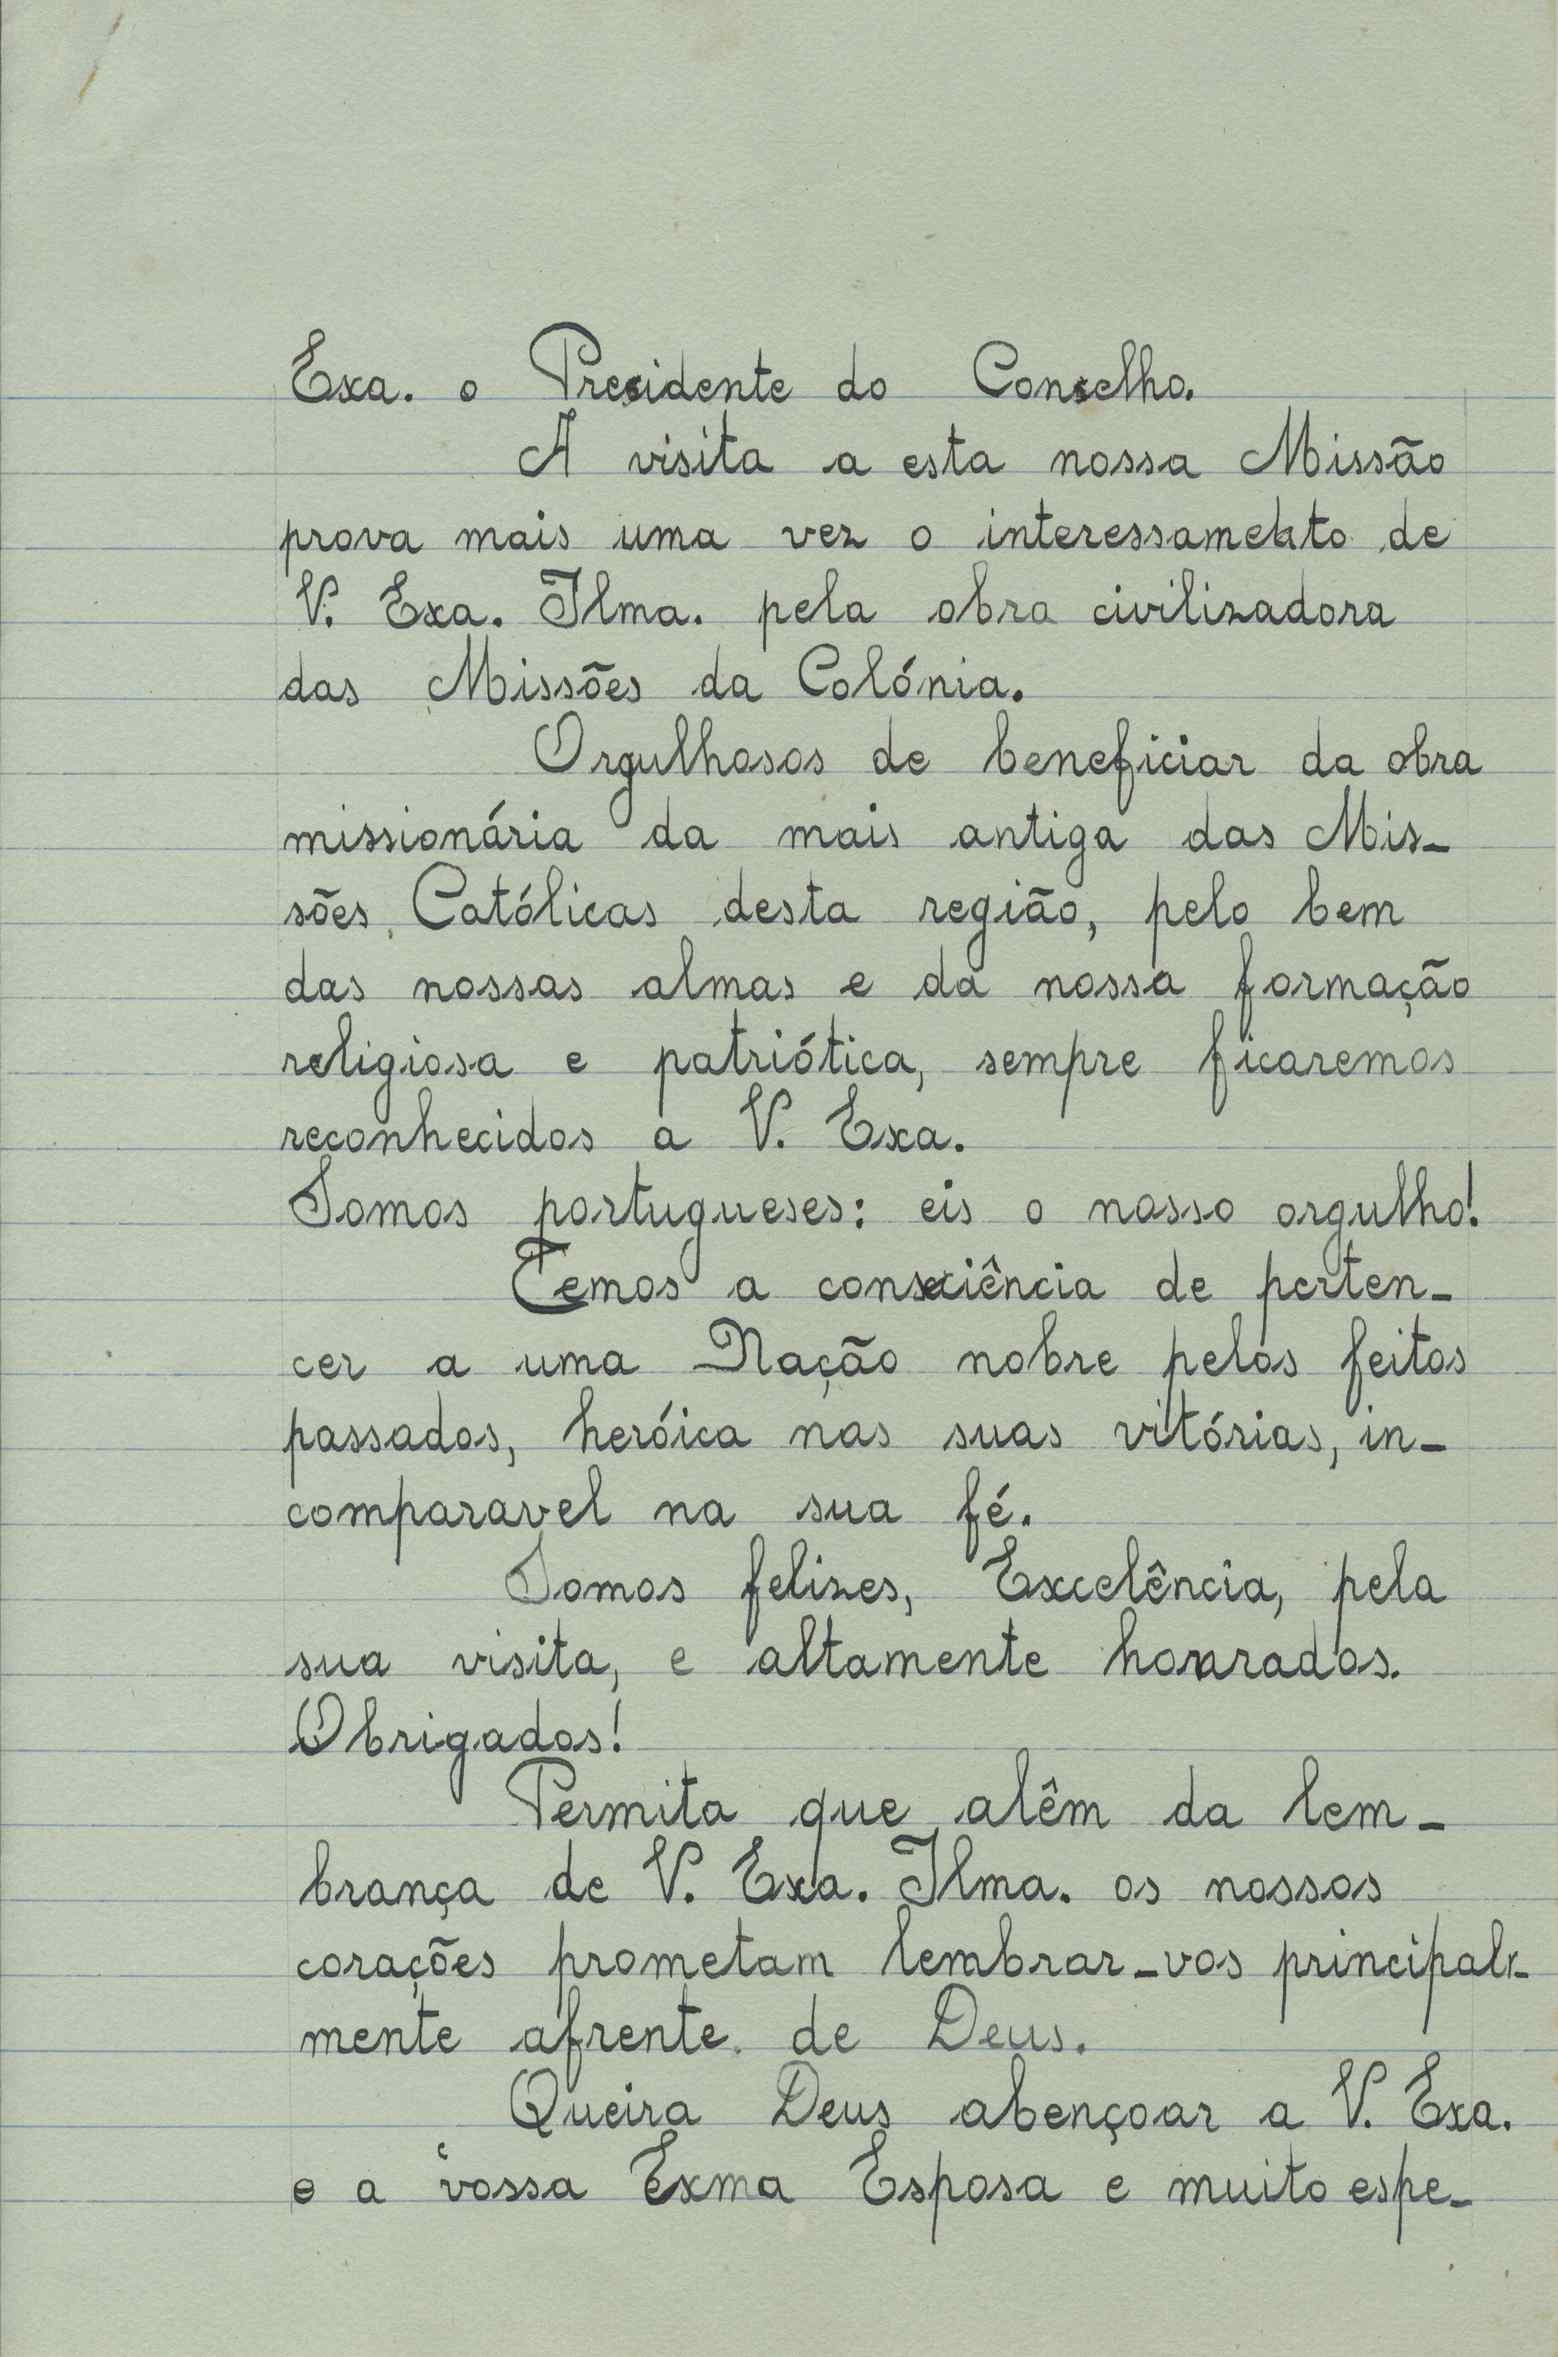 Exa. o Presidente do Conselho.
A visita a esta nossa Missão
prova mais uma vez o interessamento de
V. Exa. Ilma. pela obra civilizadora
das Missões da Colónia.
Orgulhosos de beneficiar da obra
missionária da mais antiga das Mis-
sões Católicas desta região, pelo bem
das nossas almas e da nossa formação
religiosa e patriótica, sempre ficaremos
reconhecidos a V. Exa.
Somos portugueses: eis o nosso orgulho!
Temos a consciência de perten-
cer a uma Nação nobre pelos feitos
passados, heróica nas suas vitórias, in-
comparavel na sua fé.
Somos felizes, Excelência, pela
sua visita, e altamente honrados.
Obrigados!
Permita que alêm da lem-
brança de V. Exa. Ilma. os nossos
corações prometam lembrar-vos principal-
mente afrente de Deus.
Queira Deus abençoar a V. Exa.
e a vossa Exma Esposa e muito espe-